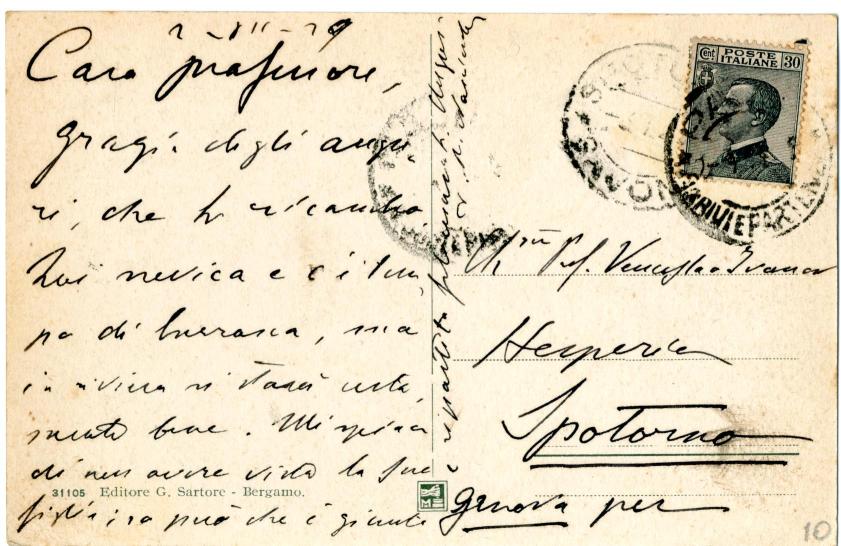 Cara professore,
grazie degli augu
ri, che le ricambio.
Qui nevica e c'è tem
po di burrasca, ma
in riviera si starà certa
mente bene. Mi spiace
di non avere visto la sua
che è giunta
e ripartita
31105 Editore G. Sartore - Bergamo.
Cent POSTE 30
ITALIANE
ARRIVI E PARTENZE
Prof. Venceslao Ivanov
Hesperia
Spotorno
Genova per
10